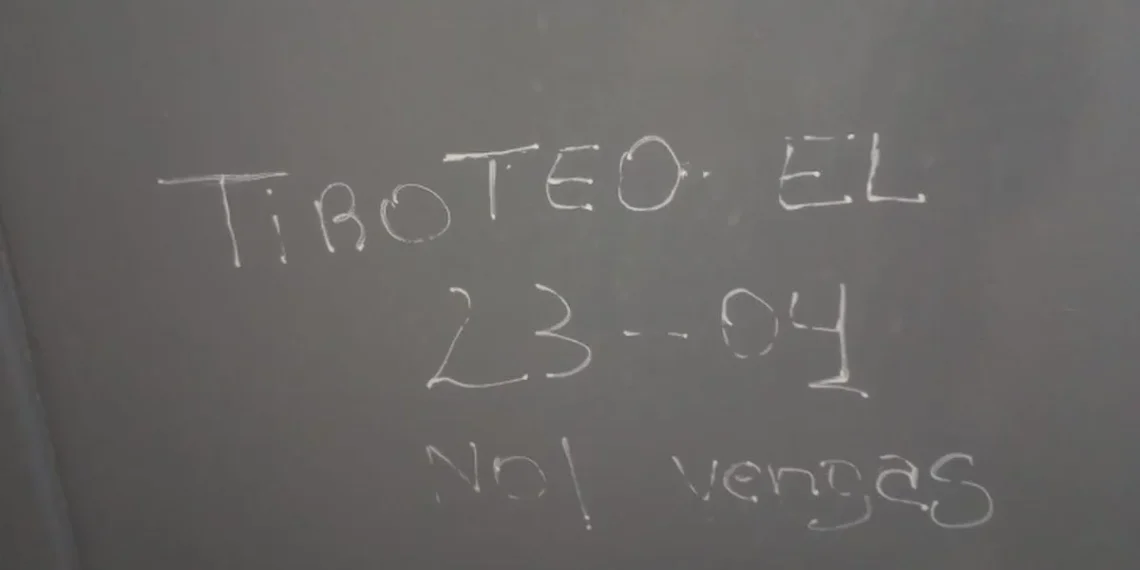 TiROTEO. EL
23--04
No! vengas